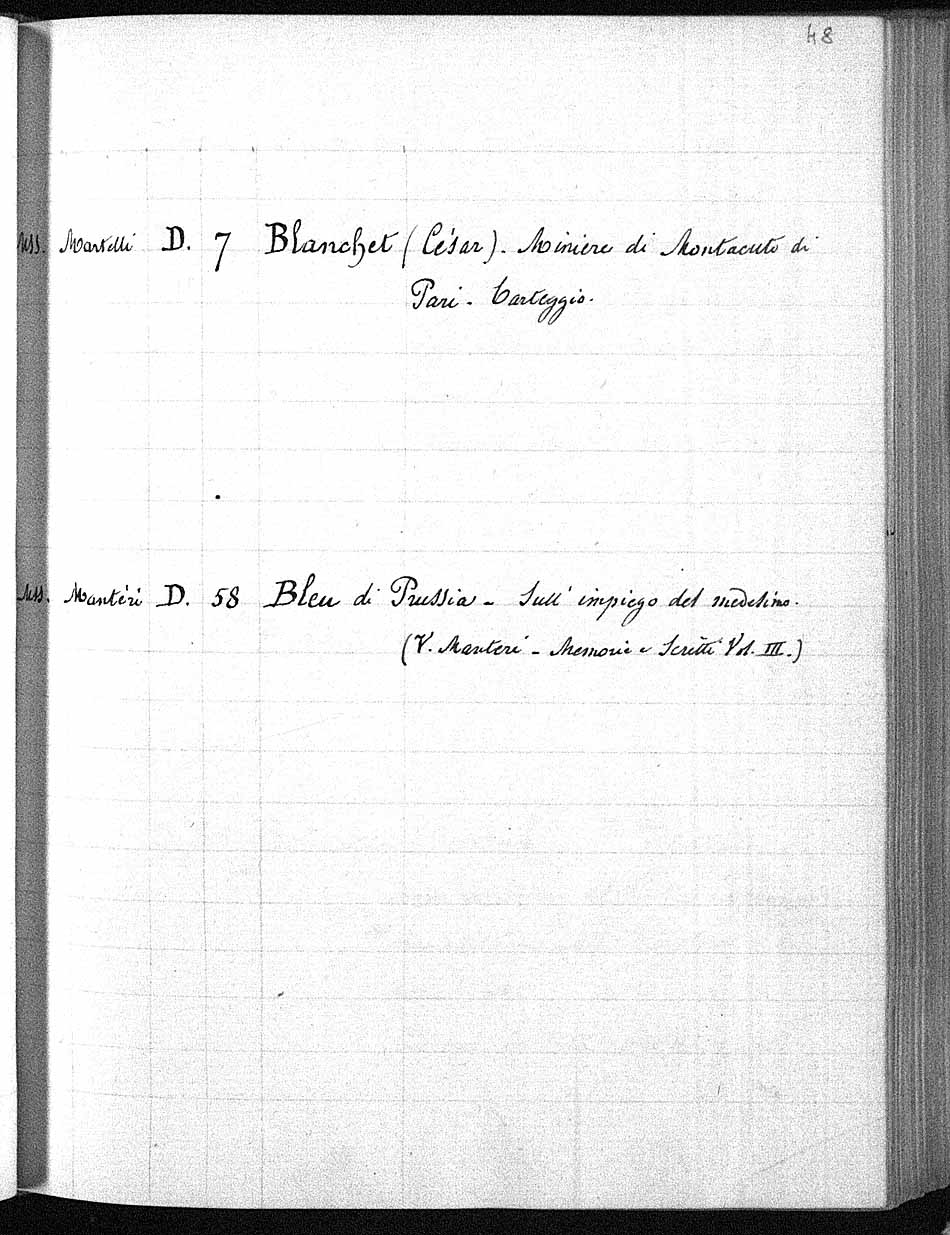 48
Mss. Martelli D. 7 Blanchet (César). Miniere di Montacuto di
Pari - Carteggio.
Mss. Mantéri D. 58 Bleu di Prussia - Sull' impiego del medesimo.
(V. Manteri - Memorie e Scritti Vol. III.)